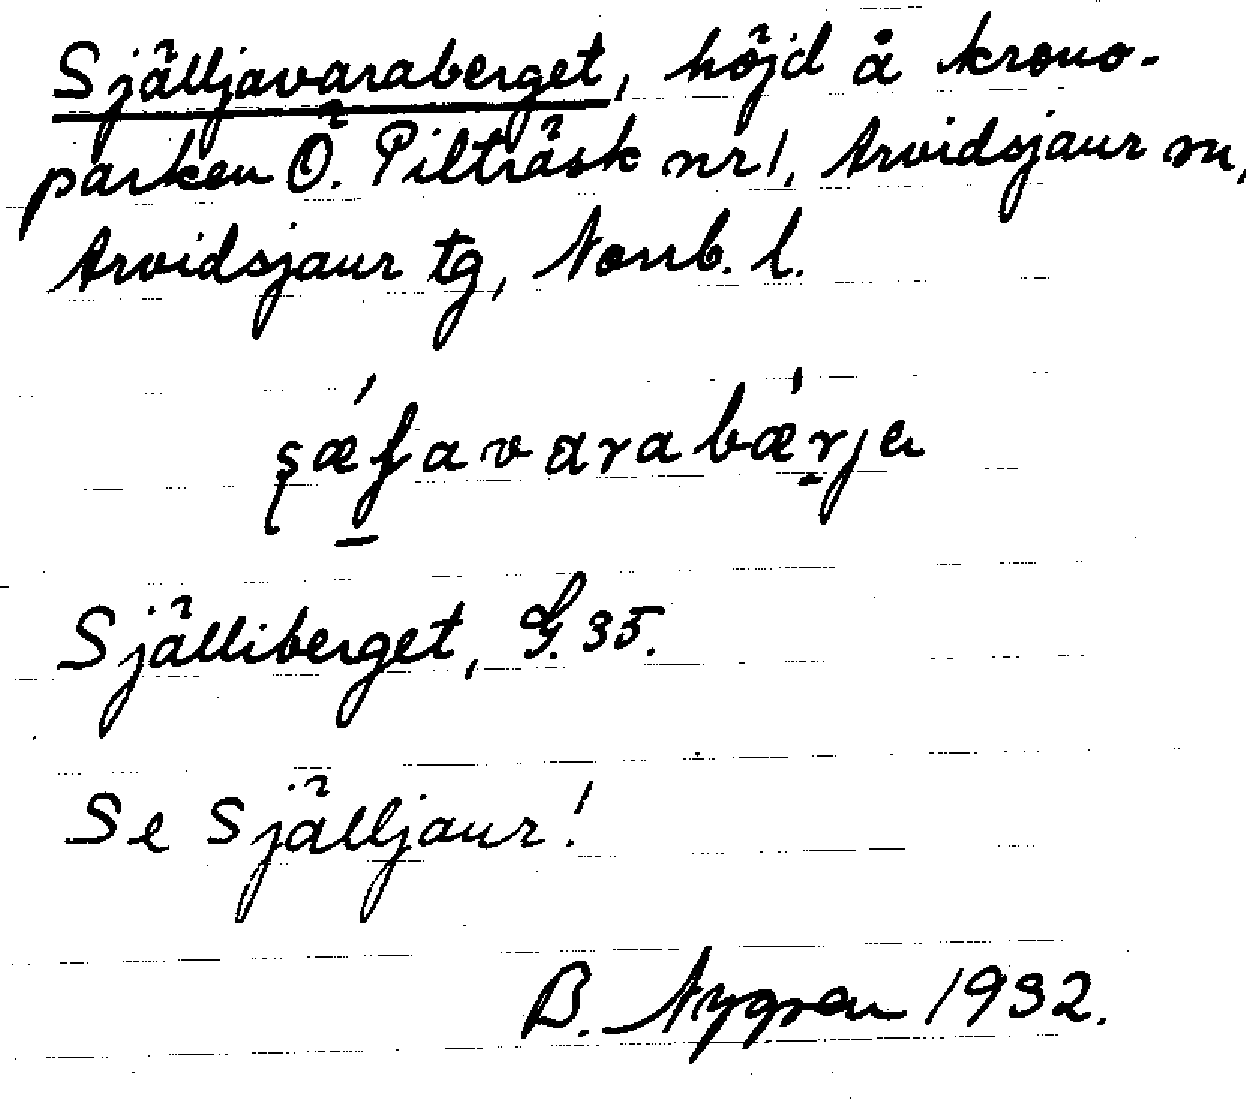 Själljavaraberget, höjd å krono-
parken Ö. Pilträsk nr 1, Arvidsjaur sn,
Arvidsjaur tg, Norrb. l.
Själliberget, G. 35.
Se Själljaur!
B. Nygren 1932.